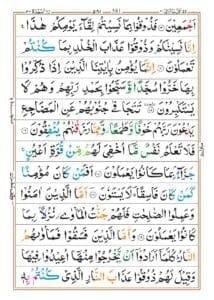 اَجْمَعِیْنَ ۝ فَذُوْقُوْا بِمَا نَسِیْتُمْ لِقَآءَ یَوْمِكُمْ هٰذَا ۚ
اِنَّا نَسِیْنٰكُمْ وَذُوْقُوْا عَذَابَ الْخُلْدِ بِمَا كُنْتُمْ
تَعْمَلُوْنَ ۝ اِنَّمَا یُؤْمِنُ بِاٰیٰتِنَا الَّذِیْنَ اِذَا ذُكِّرُوْا
بِهَا خَرُّوْا سُجَّدًا وَّسَبَّحُوْا بِحَمْدِ رَبِّهِمْ وَهُمْ لَا
یَسْتَكْبِرُوْنَ ۝ تَتَجَافٰى جُنُوْبُهُمْ عَنِ الْمَضَاجِعِ
یَدْعُوْنَ رَبَّهُمْ خَوْفًا وَّطَمَعًا وَّمِمَّا رَزَقْنٰهُمْ یُنْفِقُوْنَ ۝
فَلَا تَعْلَمُ نَفْسٌ مَّاۤ اُخْفِیَ لَهُمْ مِّنْ قُرَّةِ اَعْیُنٍ ۚ
جَزَآءًۢ بِمَا كَانُوْا یَعْمَلُوْنَ ۝ اَفَمَنْ كَانَ مُؤْمِنًا
كَمَنْ كَانَ فَاسِقًا ؕ لَا یَسْتَوٗنَ ۝ اَمَّا الَّذِیْنَ اٰمَنُوْا
وَعَمِلُوا الصّٰلِحٰتِ فَلَهُمْ جَنّٰتُ الْمَاْوٰى نُزُلًۢا بِمَا
كَانُوْا یَعْمَلُوْنَ ۝ وَاَمَّا الَّذِیْنَ فَسَقُوْا فَمَاْوٰىهُمُ
النَّارُ ؕ كُلَّمَاۤ اَرَادُوْۤا اَنْ یَّخْرُجُوْا مِنْهَاۤ اُعِیْدُوْا فِیْهَا
وَقِیْلَ لَهُمْ ذُوْقُوْا عَذَابَ النَّارِ الَّذِیْ كُنْتُمْ بِهٖ